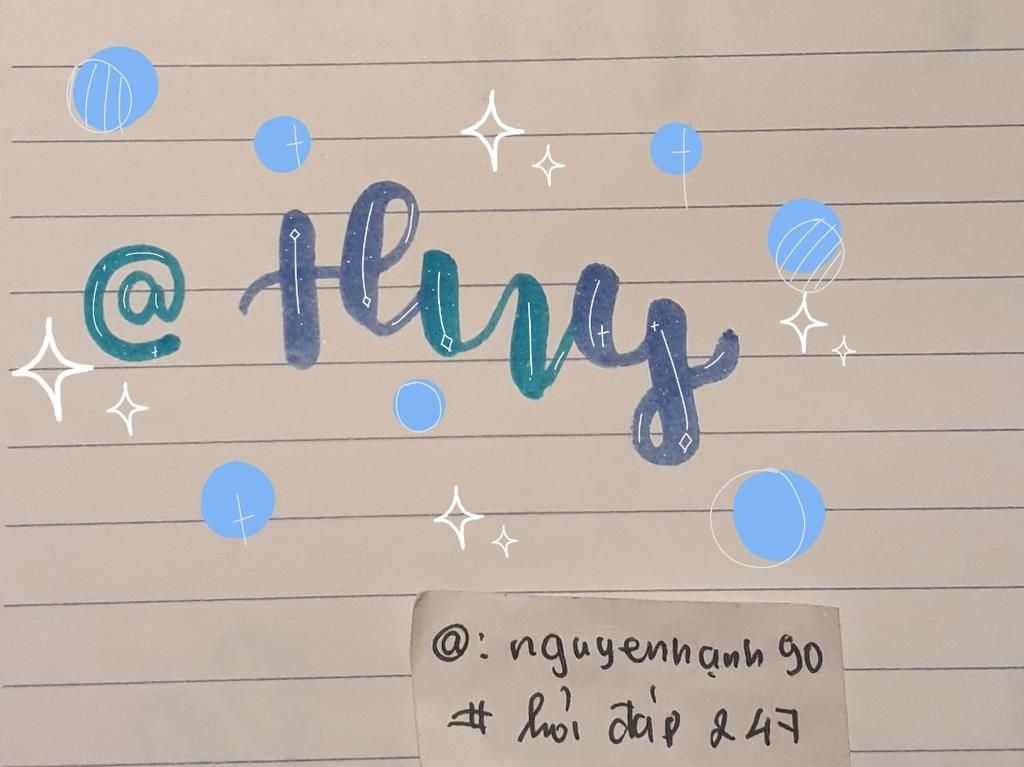 @Huy
@: nguyenhạnh90
# hỏi đáp 247